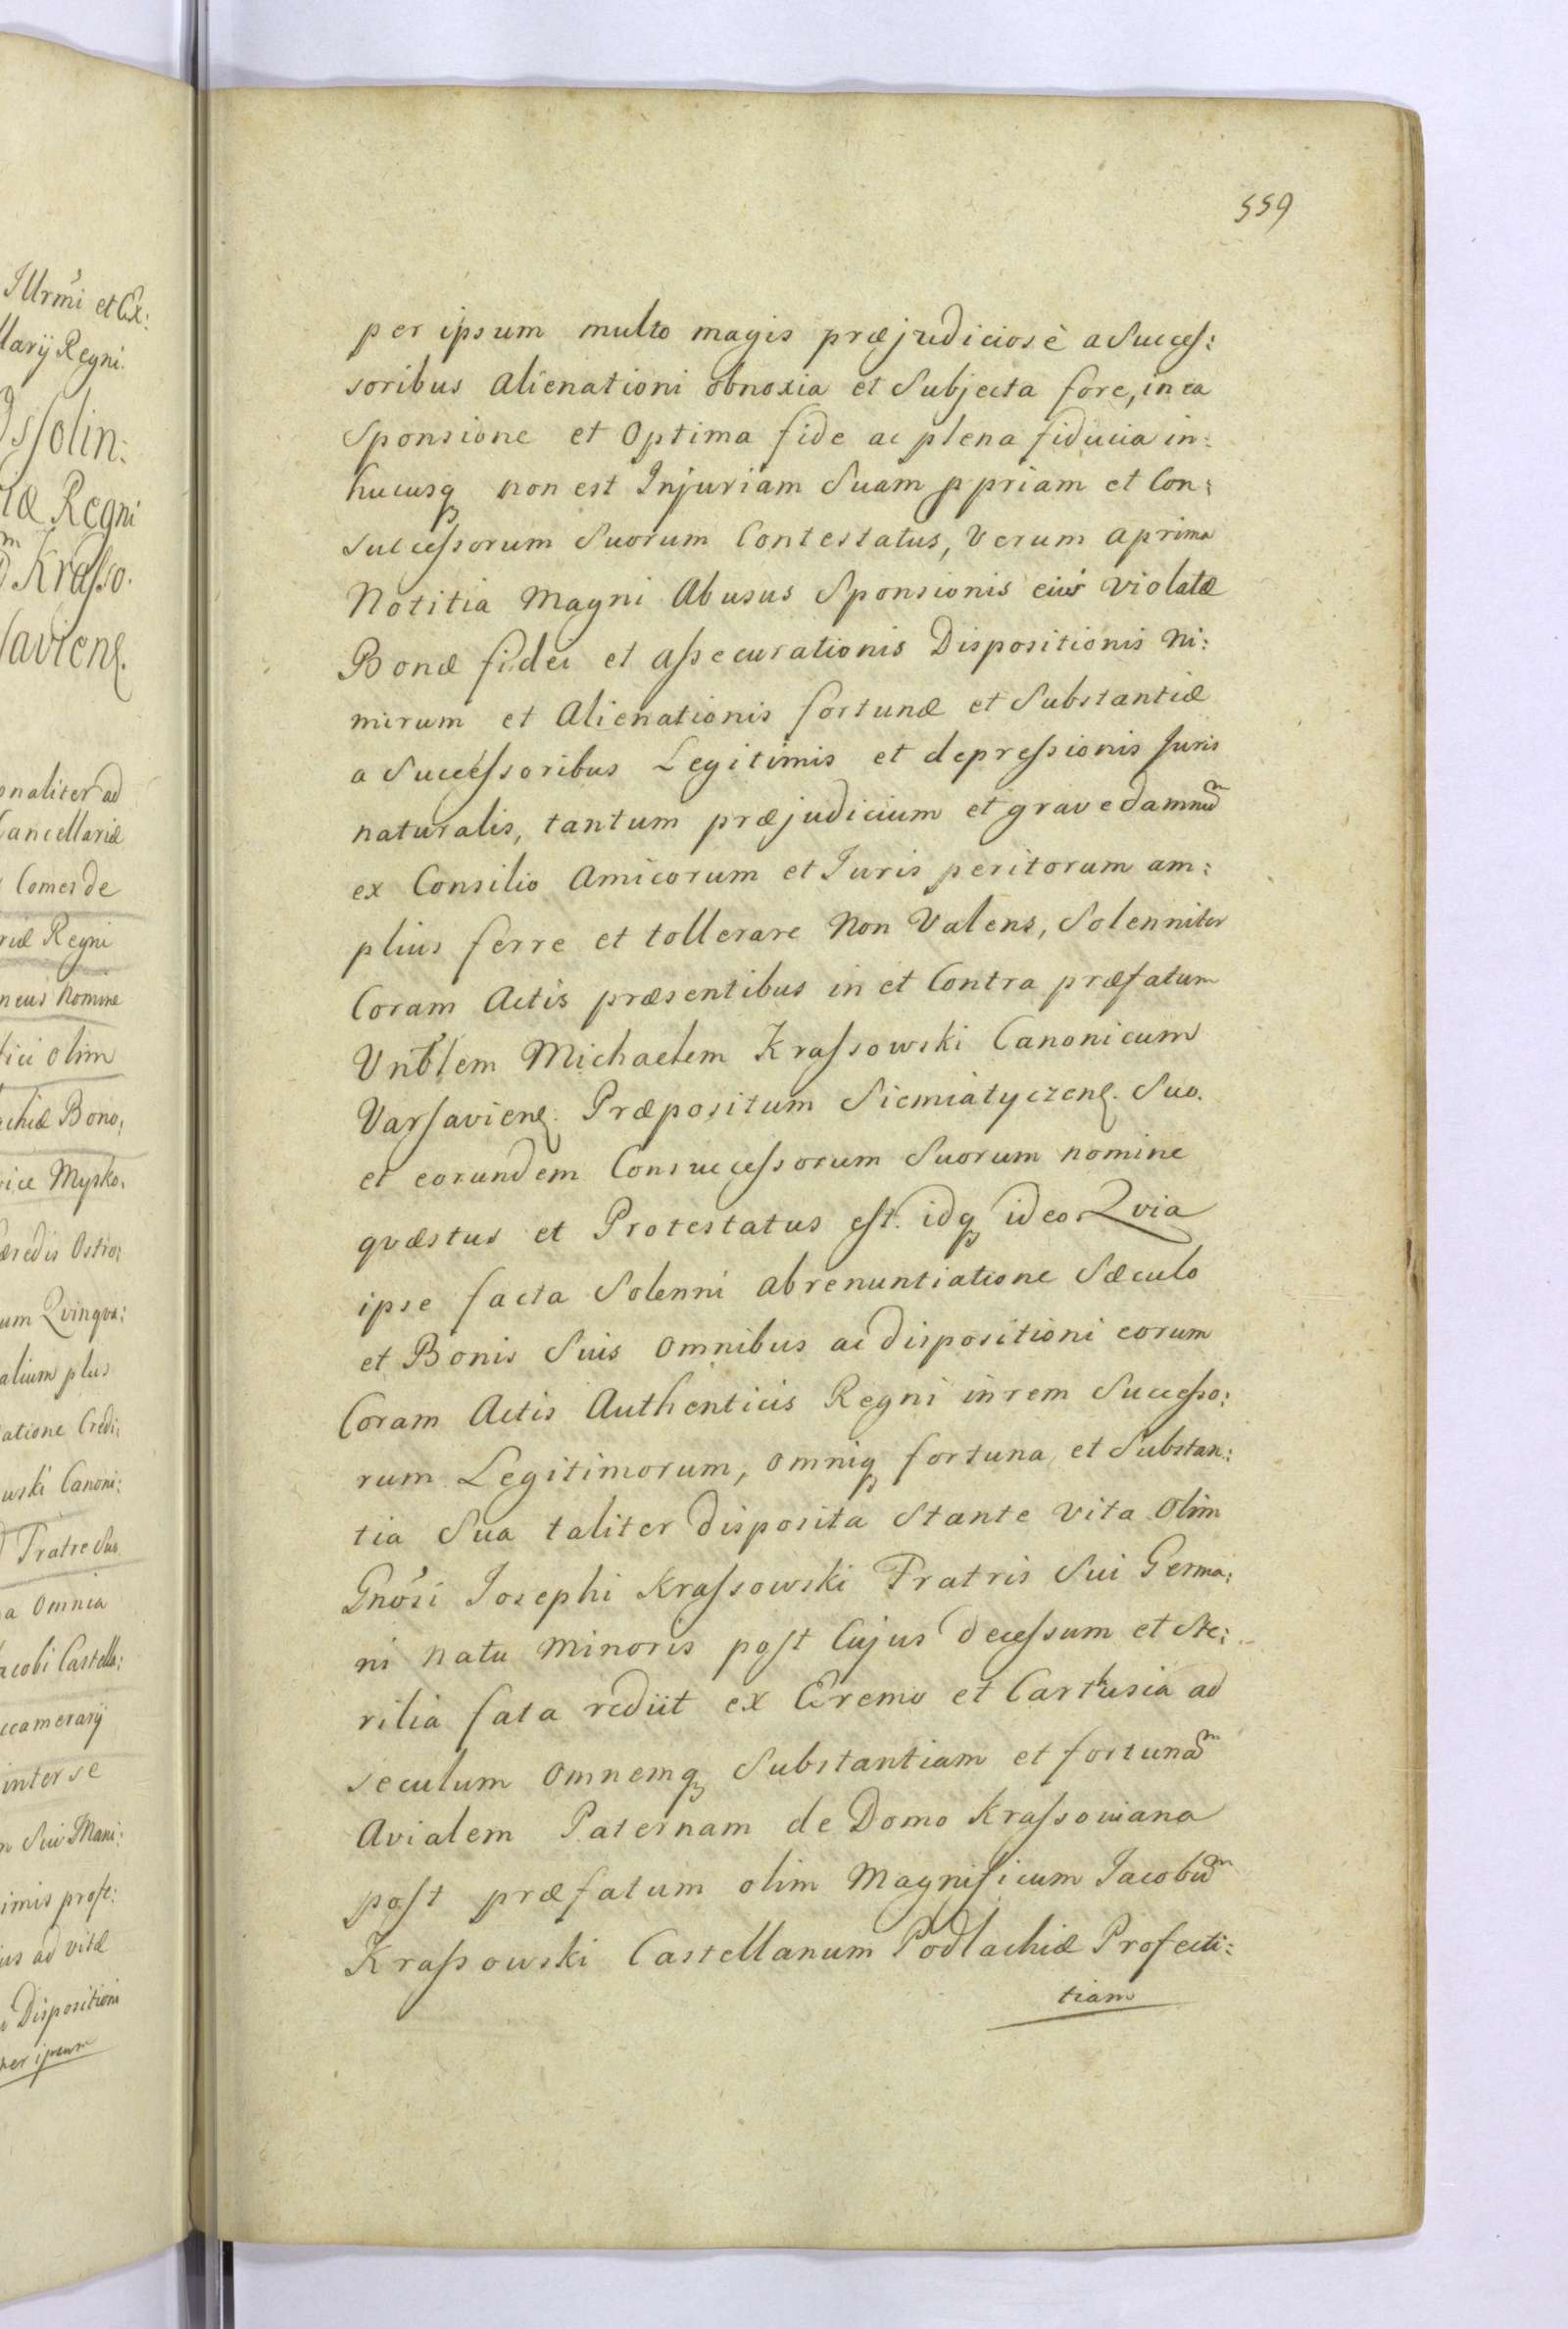 Illrmi et Ex:
llarij Regni.
Ossolin:
riæ Regni
Krasso.
saviens.
onaliter ad
Cancellariæ
Comes de
riæ Regni
meus Nomine
olim
achiæ Bono,
vice Mysko.
æredis Ostro,
um Qvinqva:
alium plus
atione Credi,
wski Canoni:
Fratre Suo
a Omnia
acobi Castella:
ccamerarij
inter se
Sui Mani:
imis prost:
us ad vitæ
Dispositioni
per ipsum
559
per ipsum multo magis præjudiciosè a Succes:
soribus alienationi obnoxia et Subjecta fore, in ea
Sponsione et Optima fide ac plena fiducia in:
hucusq non est Injuriam Suam ppriam et Con:
successorum Suorum Contestatus, verum a prima
Notitia Magni Abusus Sponsionis eius violatæ
Bonæ fidei et assecurationis Dispositionis ni:
mirum et Alienationis fortunæ et Substantiæ
a Successoribus Legitimis et depressionis Juris
naturalis, tantum præjudicium et grave damnum
ex Consilio Amicorum et Juris peritorum am:
plius ferre et tollerare Non Valens, Solenniter
Coram Actis præsentibus in et Contra præfatum
Vnblem Michaelem Krassowski Canonicum
Varsaviens. Præpositum Siemiatyczens. Suo.
et eorundem Consuccessorum Suorum nomine
qvæstus et Protestatus est. idq ideo Qvia
ipse facta Solenni abrenuntiatione Sæculo
et Bonis Suis Omnibus ac dispositioni eorum
Coram Actis Authenticis Regni in rem Successo:
rum Legitimorum, omniq fortuna et Substan:
tia Sua taliter disposita Stante vita Olim
Gnosi Josephi Krassowski Fratris Sui Germa:
ni natu minoris post Cujus decessum et Ste:
rilia fata rediit ex Eremo et Carthusia ad
seculum Omnemq Substantiam et fortunam
Avialem Paternam de Domo Krassowiana
post præfatum olim Magnificum Jacobum
Krassowski Castellanum Podlachiæ Profecti:
tiam